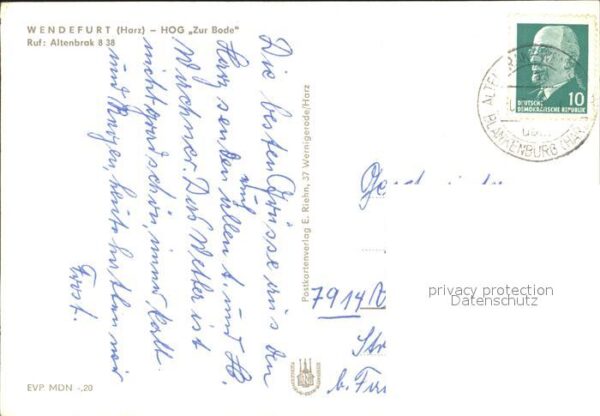 WENDEFURT (Harz) — HOG „Zur Bode"
Ruf: Altenbrak 8 38
Die besten Grüsse aus den
Harz senden allen A. und H.
und
Das Wetter ist
nicht grad schön, immer kalt
und Regen, heute hatten wir
Frost.
EVP MDN -,20
Postkartenverlag E. Riehn, 37 Wernigerode/Harz
10
DEUTSCHE
DEMOKRATISCHE REPUBLIK
ALTEN
über
BLANKENBURG (HARZ
7914
Str
b.
privacy protection
Datenschutz